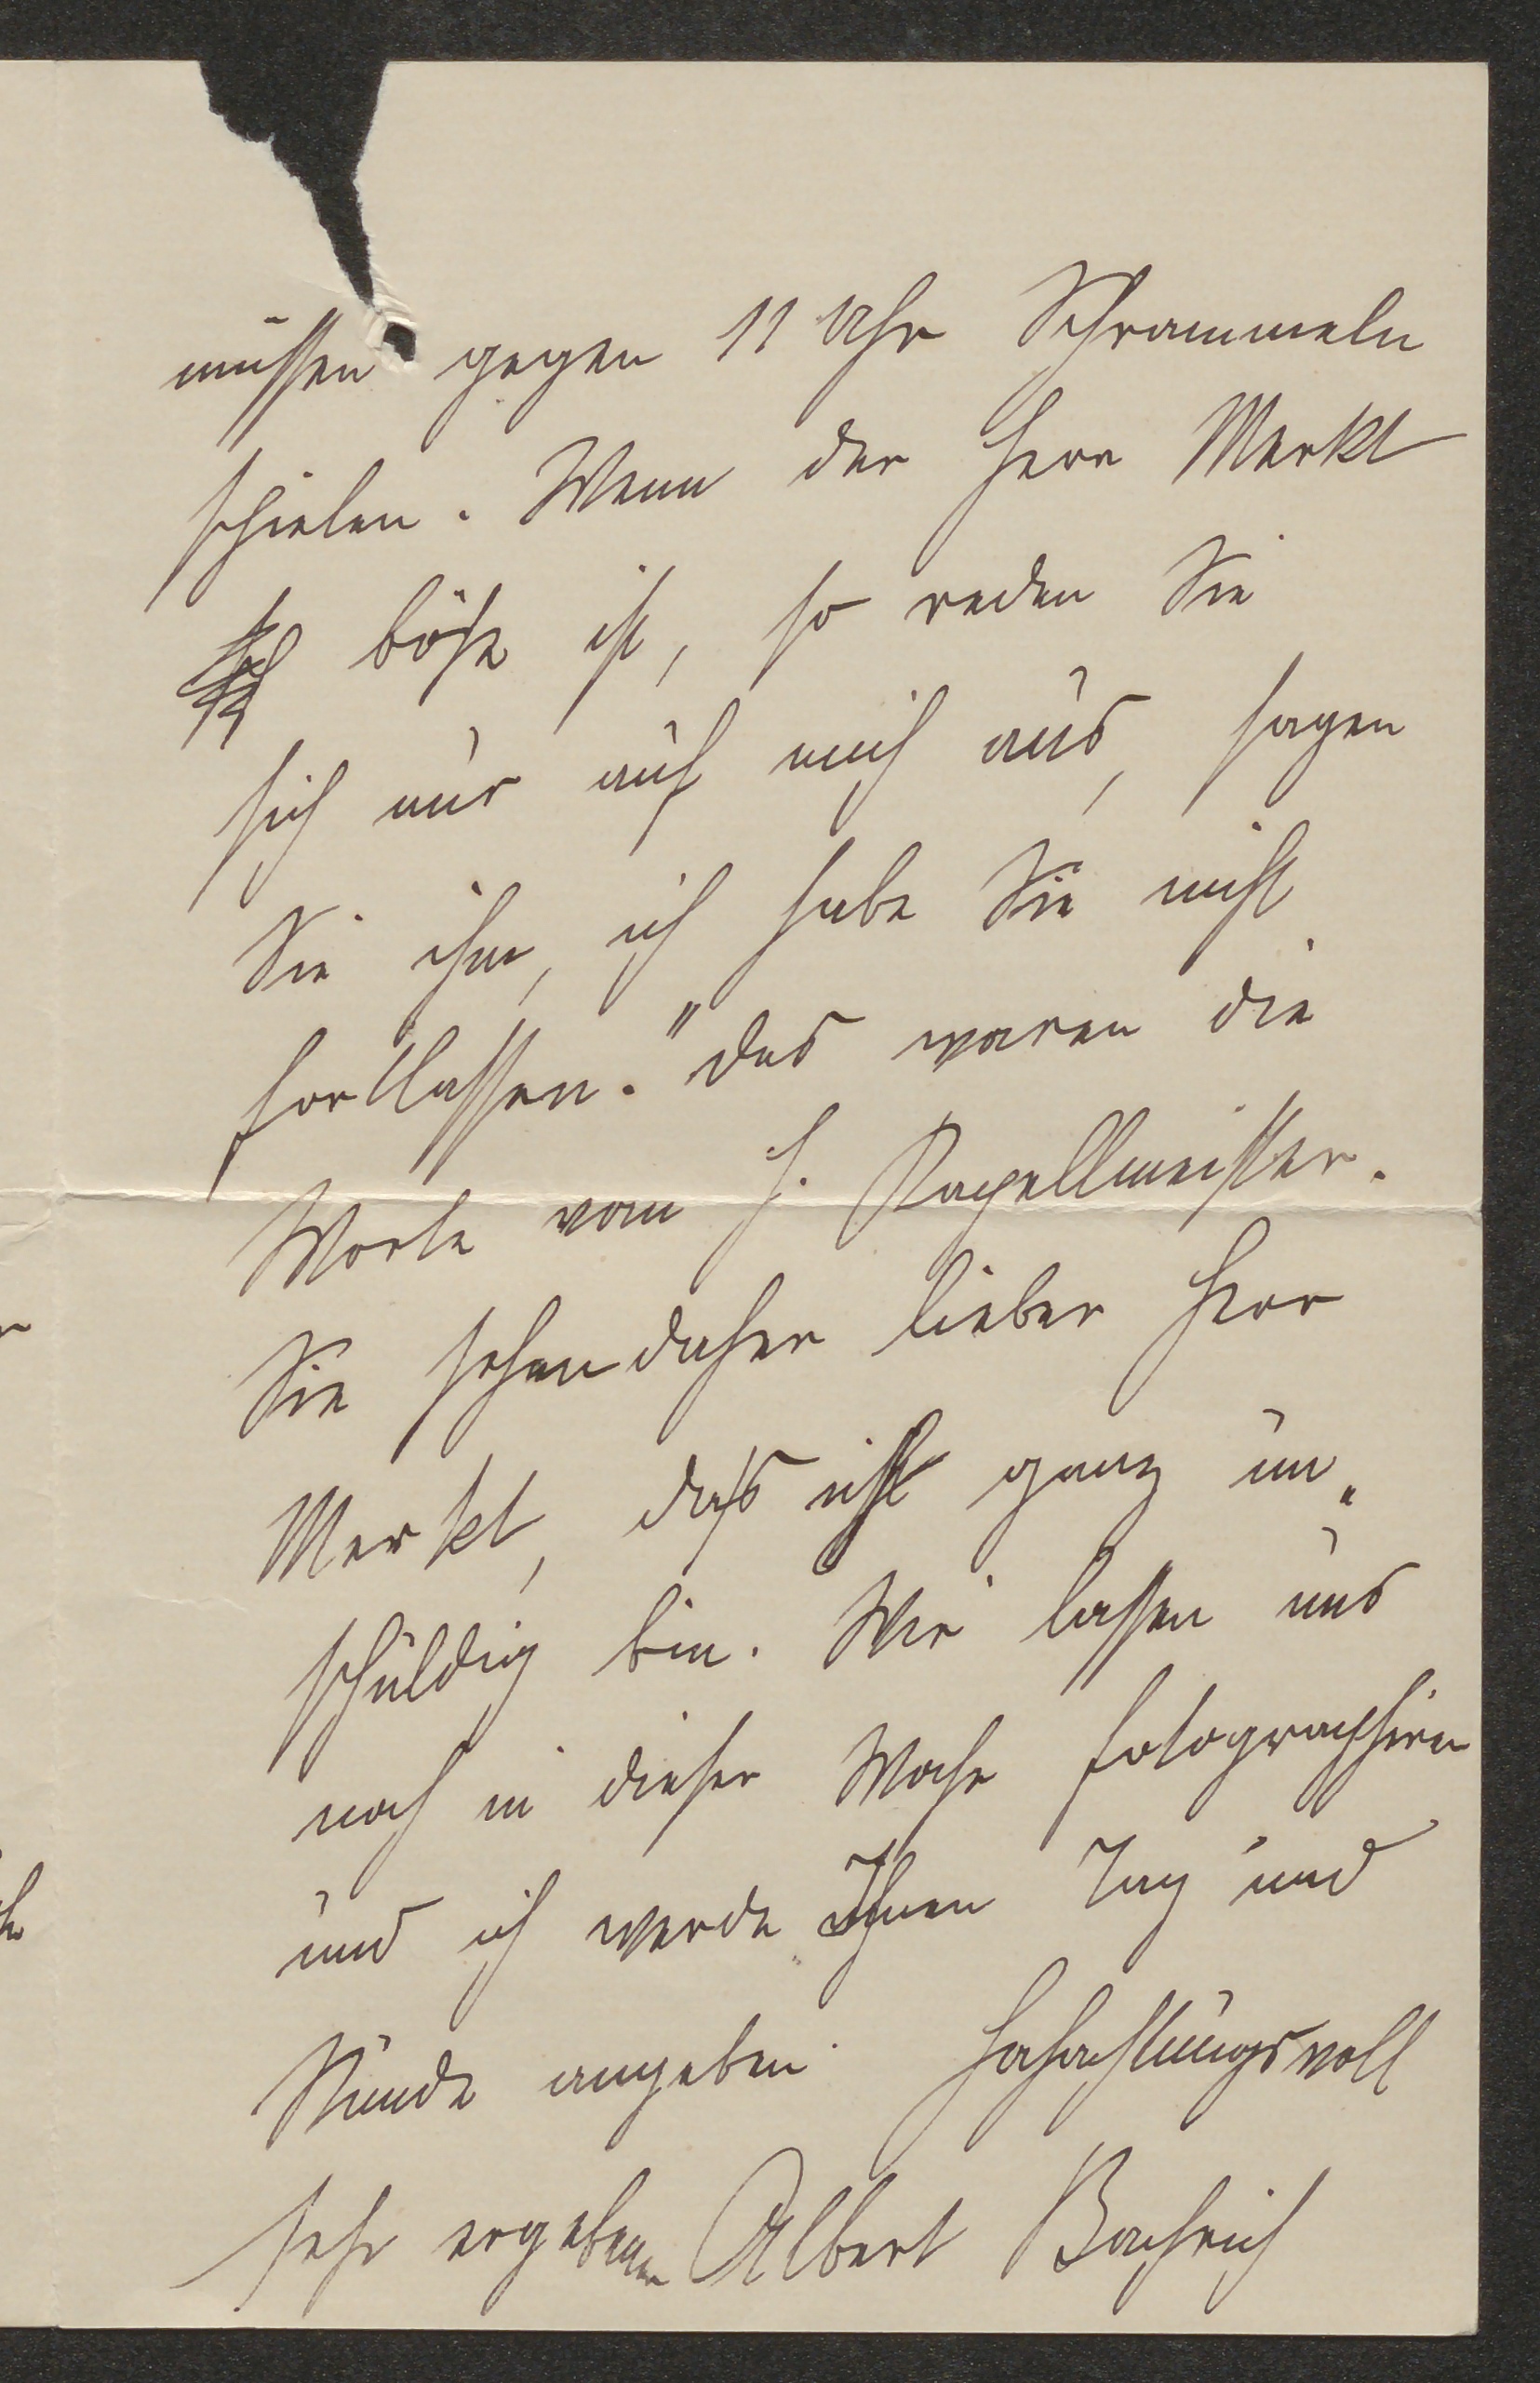 müssen gegen 11 Uhr Schrammeln
spielen. Wenn der Herr Merkl
böse ist, so reden Sie
sich nur auf mich aus, sagen
Sie ihm, ich habe Sie nicht
fortlassen." Das waren die
Worte vom H. Kapellmeister.
Sie sehen daher lieber Herr
Merkl, daß ich ganz un„
schuldig bin. Wir lassen uns
noch in dieser Woche fotographiren
und ich werde Ihnen Tag und
Stunde angeben. Hochachtungsvoll
sehr ergebener Albert Bachrich